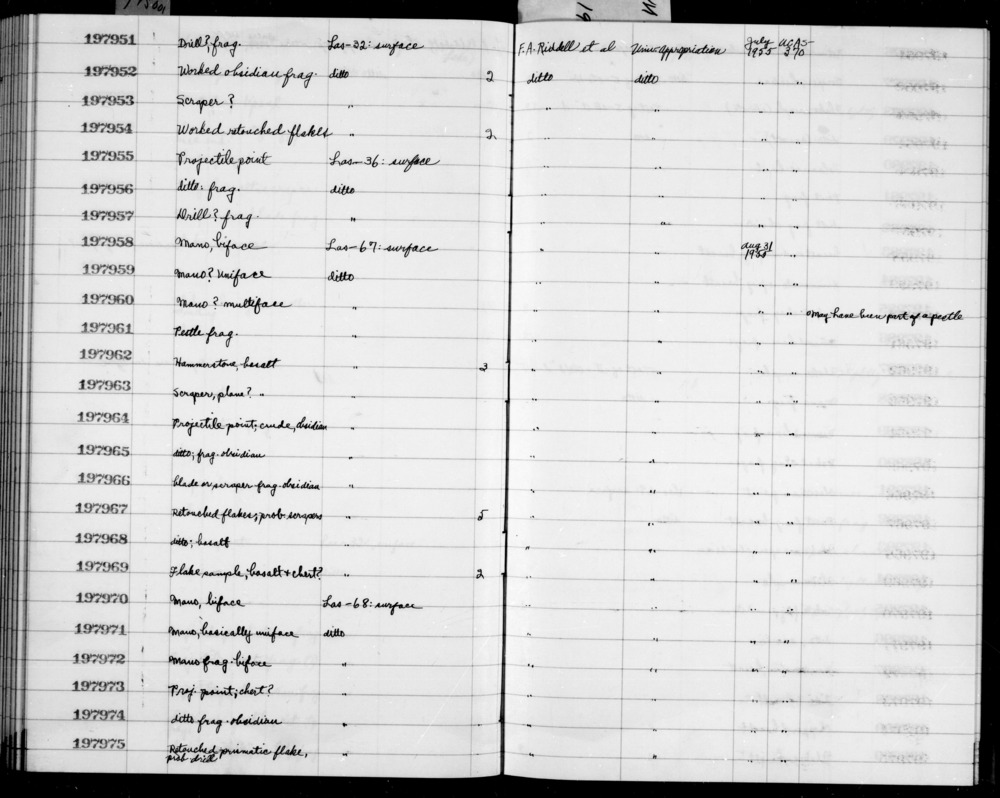 197951 Drill?, frag. Las-32: surface F.A. Riddell et al Univ. appropriation July 1955 UCAS-270
197952 Worked obsidian frag. ditto 2 ditto ditto " "
197953 Scraper ? " " " " "
197954 Worked retouched flakes " 2 " " " "
197955 Projectile point Las-36: surface " " " "
197956 ditto: frag. ditto " " " "
197957 Drill? frag. " " " " "
197958 Mano, biface Las-67: surface " " Aug 31 1955 "
197959 Mano? Uniface ditto " " " "
197960 Mano? multiface " " " " " may have been part of a pestle
197961 Pestle frag. " " " " "
197962 Hammerstone, basalt " 3 " " " "
197963 Scraper, plane? " " " " " "
197964 Projectile point; crude, obsidian " " " " "
197965 ditto; frag. obsidian " " " " "
197966 blade or scraper frag. obsidian " " " " "
197967 Retouched flakes; prob. scrapers " 5 " " " "
197968 ditto; basalt " " " " "
197969 Flake sample; basalt + chert? " 2 " " " "
197970 Mano, biface Las-68: surface " " " "
197971 Mano, basically uniface ditto " " " "
197972 Mano frag. biface " " " " "
197973 Proj. point; chert? " " " " "
197974 ditto frag. obsidian " " " " "
197975 Retouched prismatic flake, " " " " "
prob drill